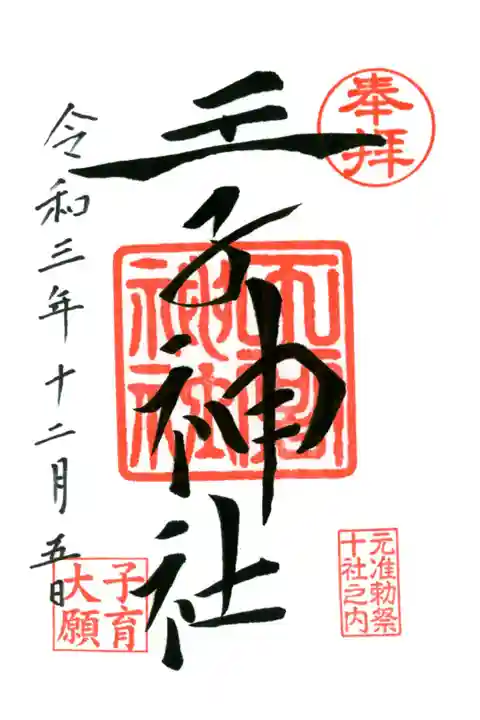 奉拝
元准勅祭
十社之内
王子神社
王子
神社
子育
大願
令和三年十二月五日